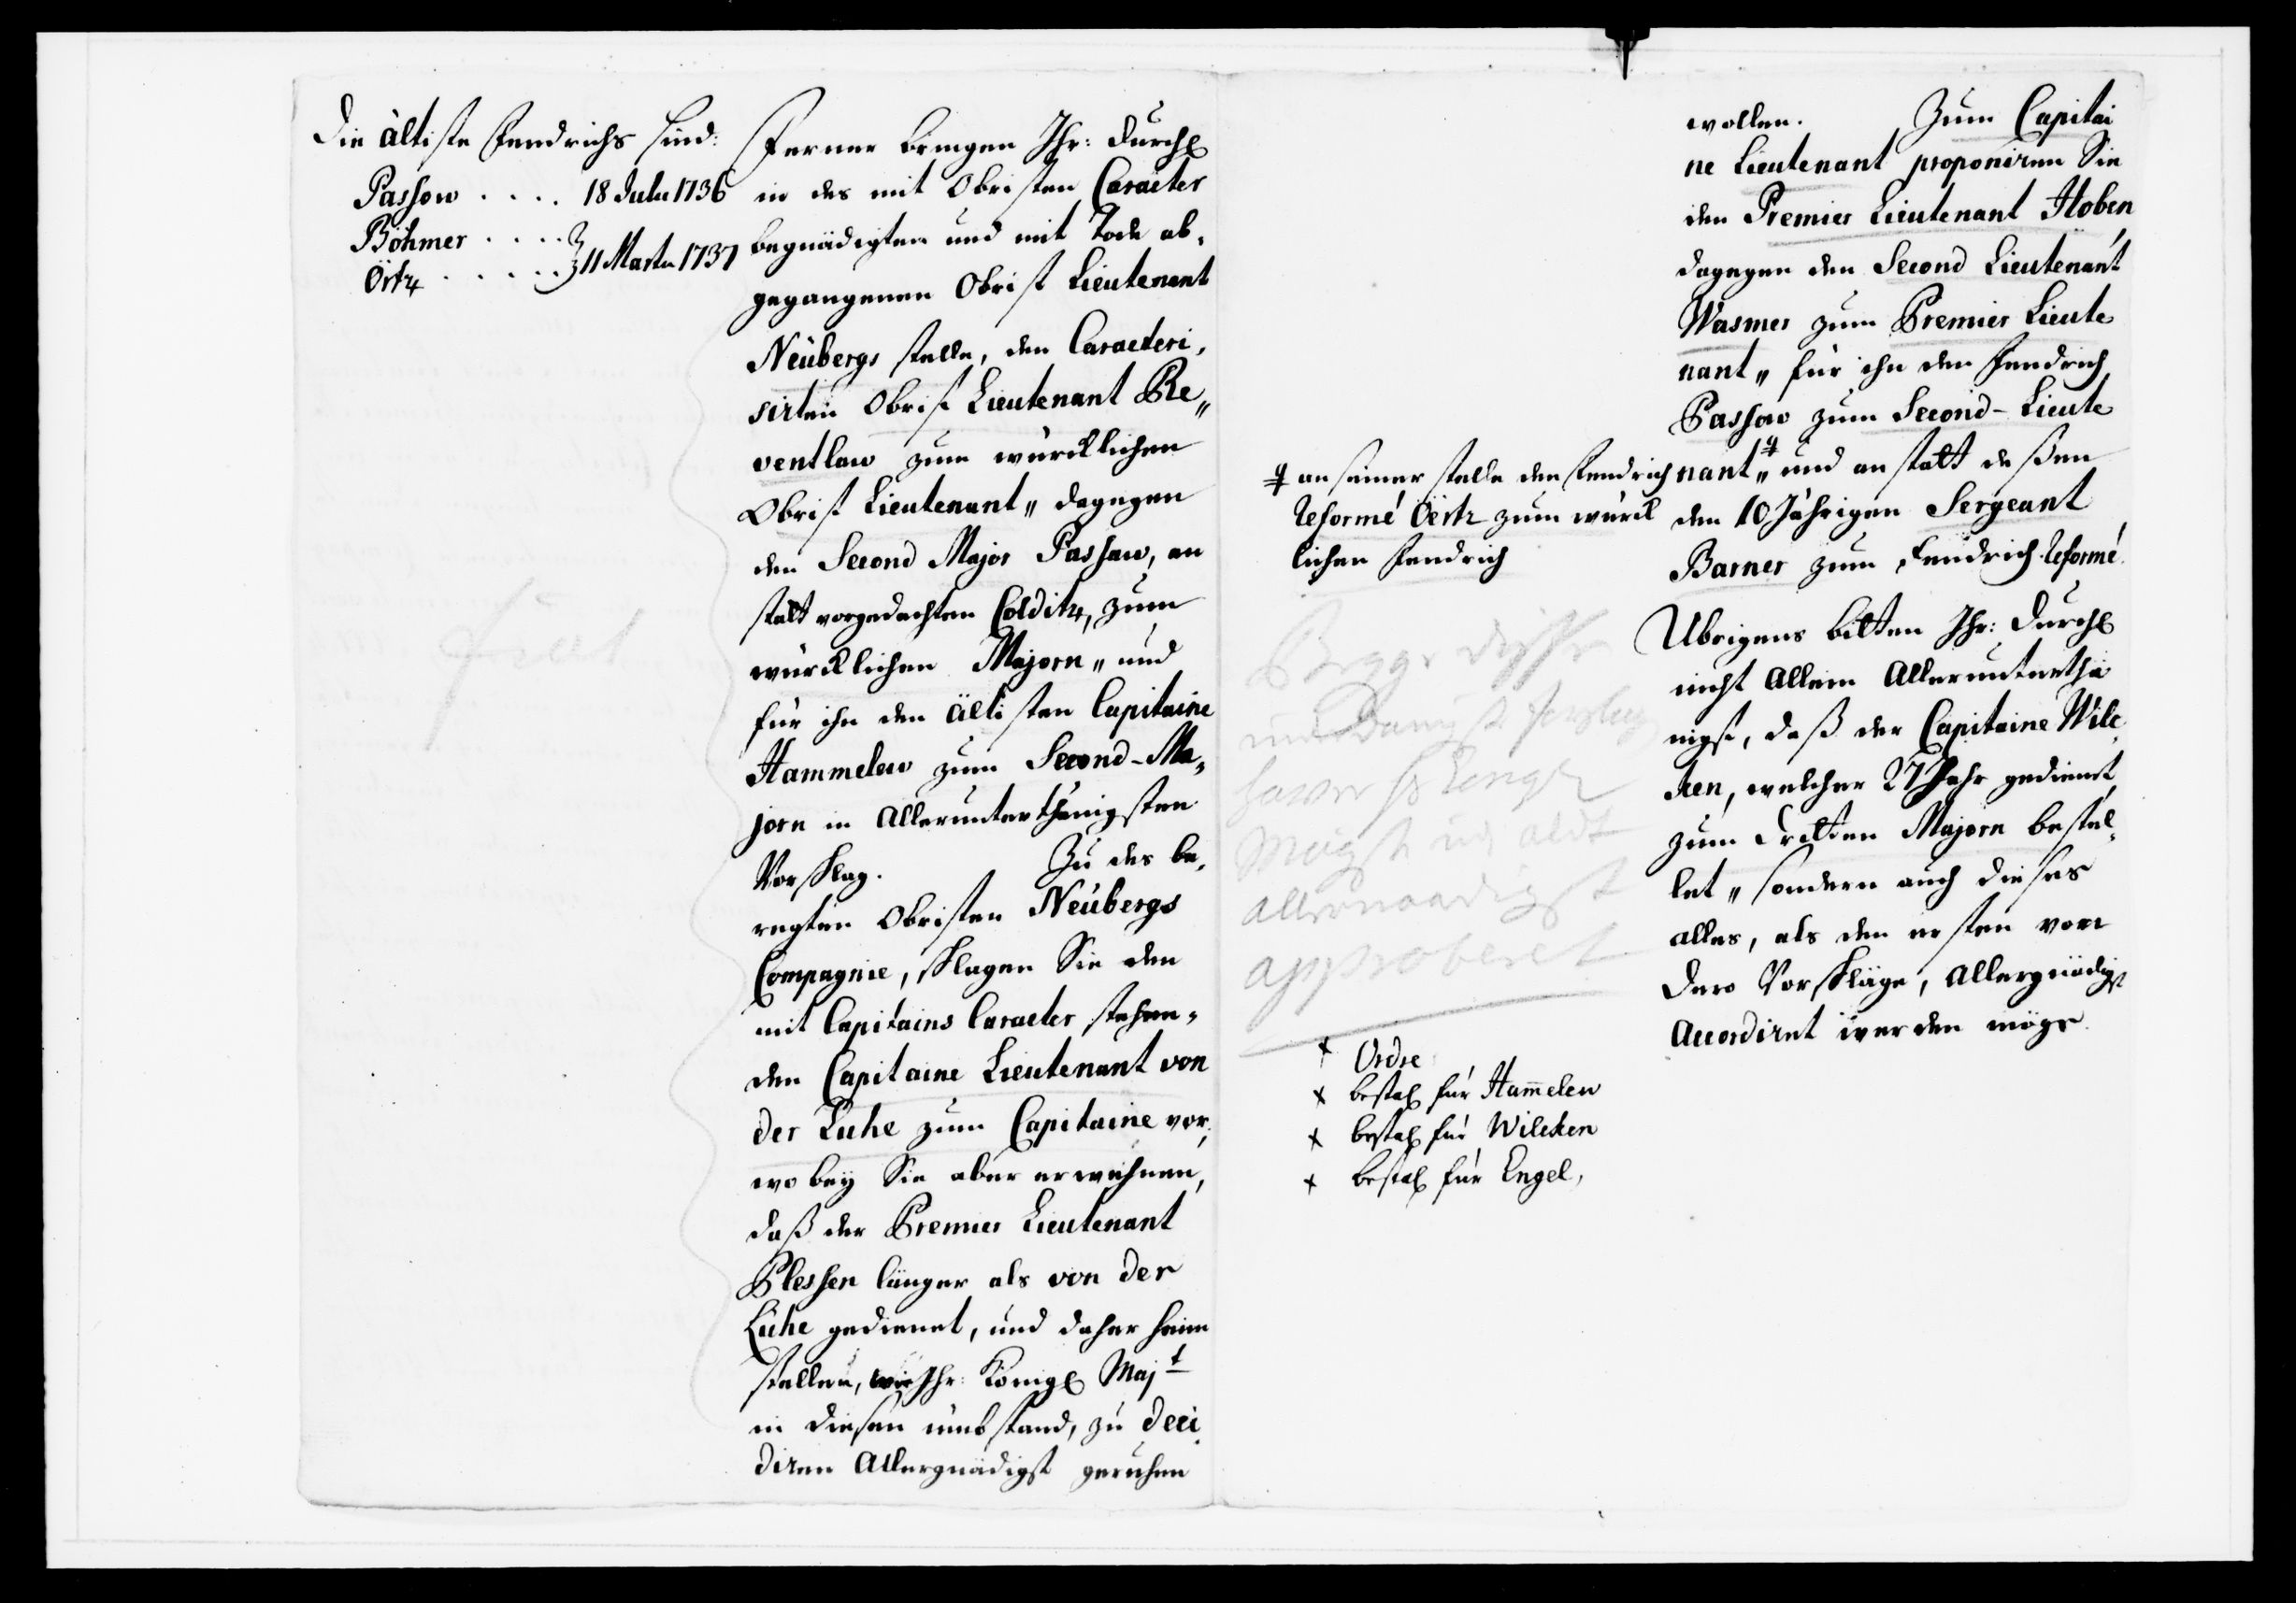 Die ältiste Fendrichs sind:
Passow .... 18 Julii 1736
Böhmer ....
Örtz ..... } 11 Martii 1737
Ferner bringen Ihr: Durchl
in des mit Obristen Caracter
begnädigten und mit Tode ab„
gegangenen Obrist Lieutenant
Neübergs stelle, den Caracteri„
sirten Obrist Lieutenant Re„
ventlaw zum würcklichen
Obrist Lieutenant„ dagegen
den Second Major Passaw, an
statt vorgedachten Colditz, zum
würcklichen Majorn„ und
für ihn den ältisten Capitaine
Hammelew zum Second-Ma„
jorn in allerunterthänigsten
Vorschlag. Zu des be„
regten Obristen Neübergs
Compagnie, schlagen Sie den
mit Capitains Caracter stehen„
den Capitaine Lieutenant von
der Lühe zum Capitaine vor,
wobey Sie aber erwehnen,
daß der Premier Lieutenant
Plessen länger als von der
Lühe gedienet, und daher heim
stellen, wie Ihr: Königl Majt
in diesen umbstand, zu deci
diren Allergnädigst geruhen
wollen. Zum Capitai
ne Lieutenant proponiren Sie
den Premier Lieutenant Hoben
dagegen den Second Lieutenant
Wasmer zum Premier Lieute
nant„ für ihn den Fendrich
Passow zum Second-Lieute
nant„ und an statt deßen
den 10 Jährigen Sergeant
Barner zum Fendrich Reformé.
an seiner stelle den Fendrich
Reformé Öertz zum würck
lichen Fendrich
Übrigens bitten Ihr: Durchl
nicht allein Allerunterthä
nigst, daß der Capitaine Wilc
ken, welcher 27 Jahr gedienet,
zum Dritten Majorn bestel„
let„ sondern auch dieses
alles, als den ersten von
Dero Vorschläge, Allergnädigst
Accordiret werden möge.
Begge disse
underdanigste forslag
haver
Mayst
allernaadigst
approberet
x Ordre
x bestal für Ham̄elew
x bestal für Wilcken
x bestal für Engel,